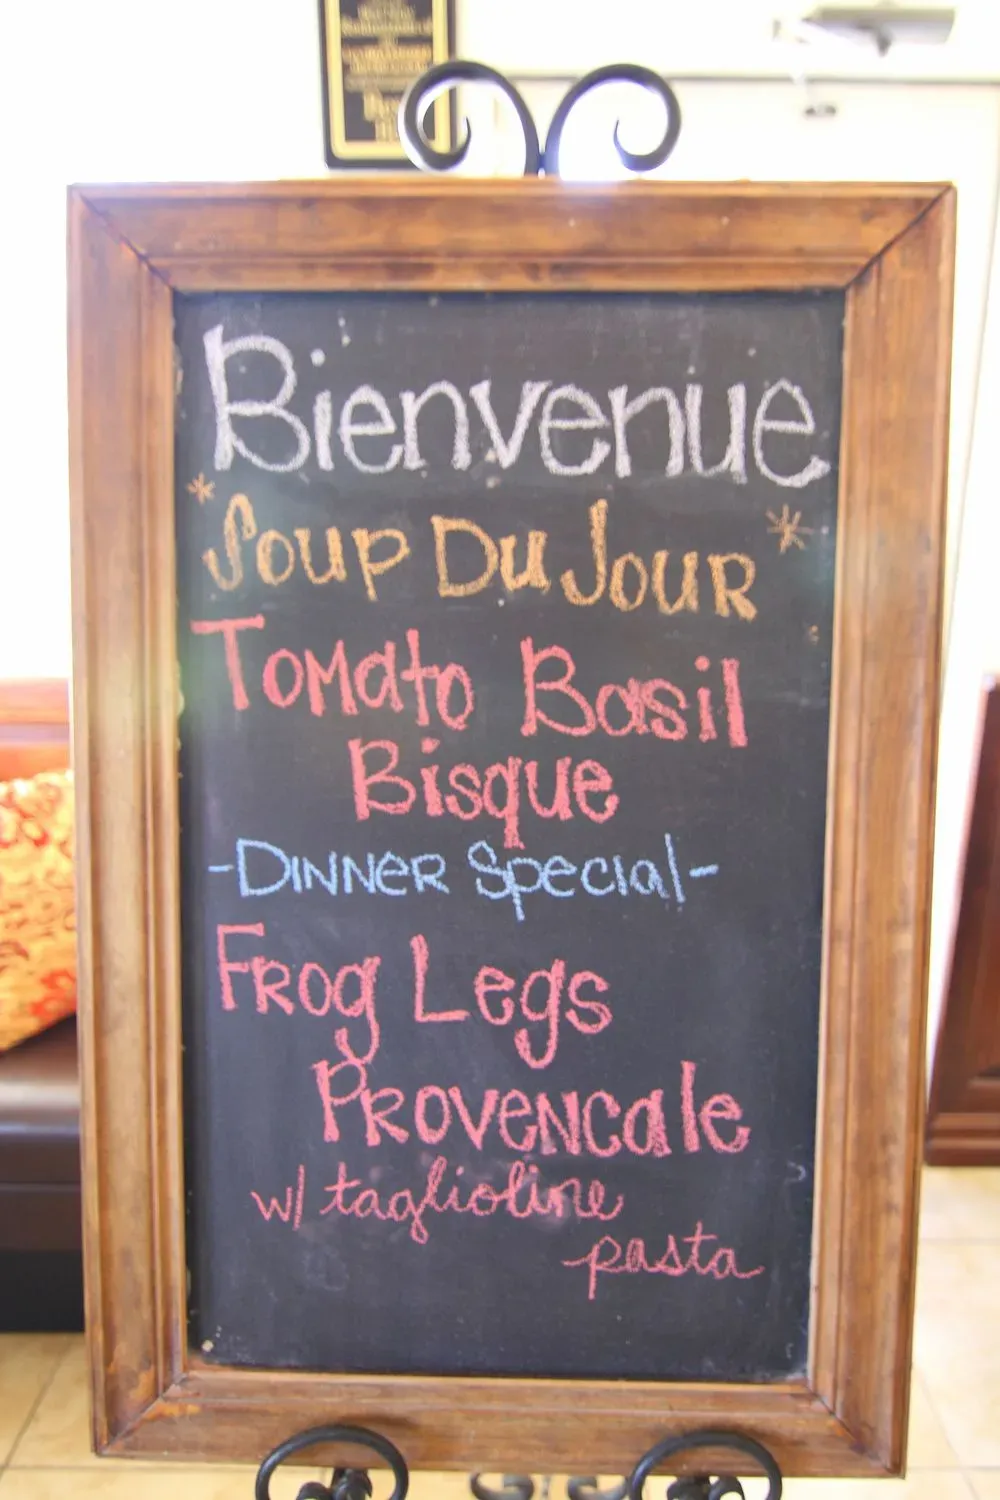 Bienvenue
*Soup Du Jour*
Tomato Basil
Bisque
-Dinner Special-
Frog Legs
Provencale
w/ taglioline
pasta